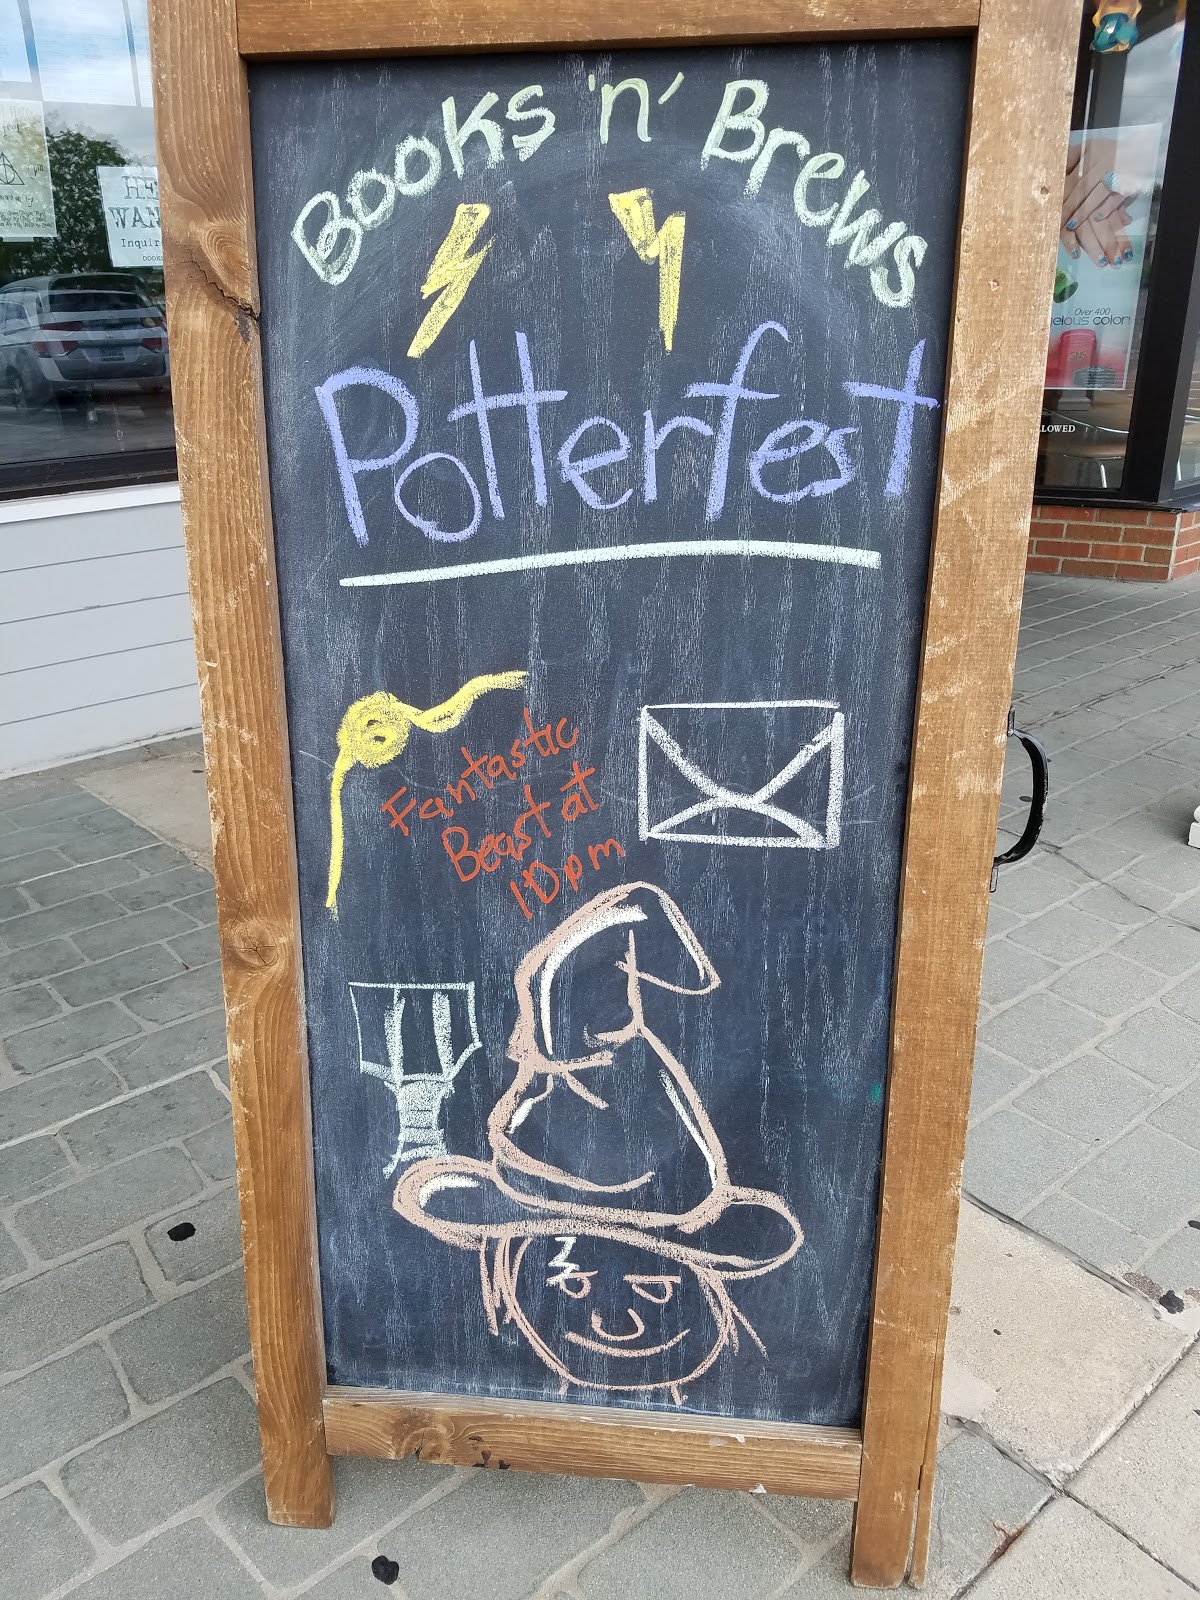 Books 'n' Brews
Potterfest
Fantastic
Beast at
10pm
HE
WAN
Inquir
books
Over 400
elous color
SNS
LOWED